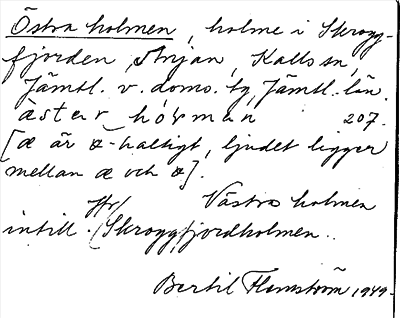 Östra holmen, holme i Skrogg-
fjorden, Anjan, Kalls sn,
Jämtl. v. doms. tg, Jämtl. län.
àstar hólmən 207.
[æ är a-haltigt, ljudet ligger
mellan æ och a].
Hr/ Västra holmen
intill. /Skroggfjordholmen.
Bertil Flemström 1949.